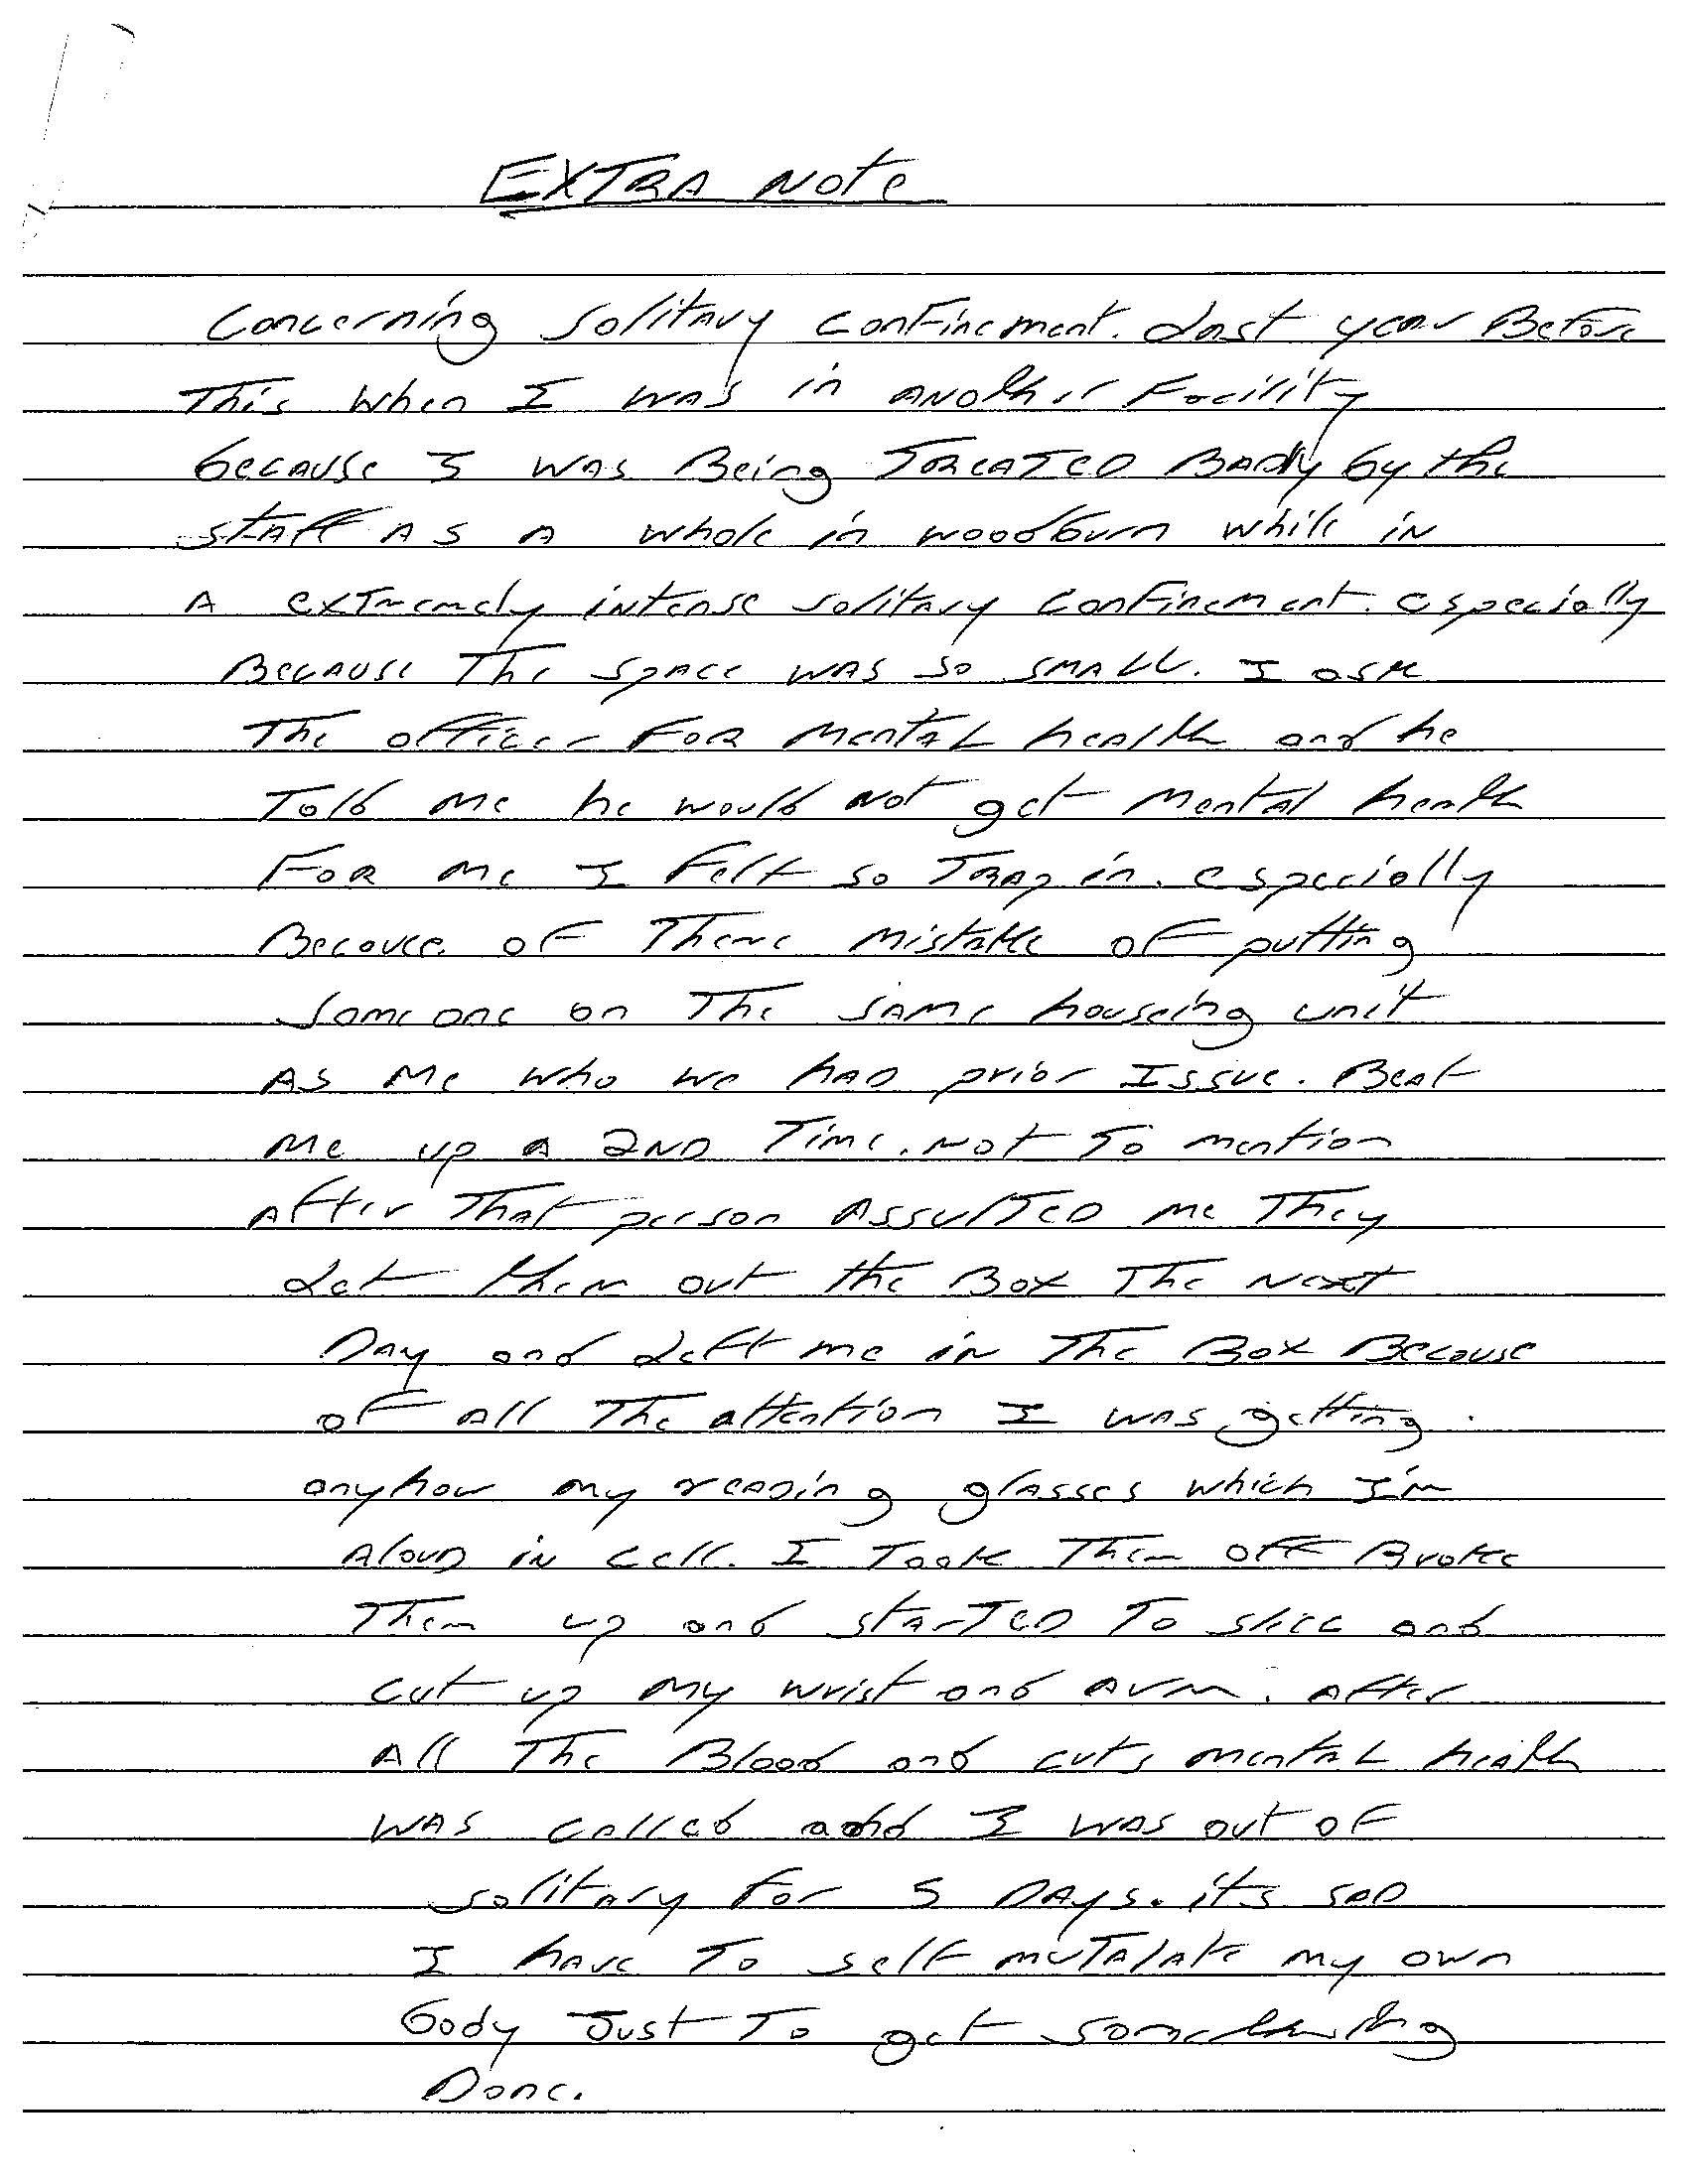 EXTRA Note
Concerning solitary confinement. Last year Before
This when I was in another Facility
because I was Being TREATED BADly by the
staff AS A whole in woodburn while in
A extremely intense solitary confinement. especially
Because The space was so small. I ask
The officer FOR mental health and he
Told me he would not get mental health
FOR me I felt so TRAP in. especially
Because of There mistake of putting
someone on The same houseing unit
AS me who we had prior Issue. Beat
me up a 2ND Time. not To mention
after That person ASSULTED me They
Let them out the Box The Next
Day and Left me in The Box Because
of all The attention I was getting.
anyhow my reading glasses which I'm
aloud in cell. I Took Them off Broke
Them up and started To slice and
cut up my wrist and arm. After
All The Blood and cuts mental health
was called and I was out of
solitary for 5 Days. its sad
I have To self mutalate my own
body Just To get something
Done.